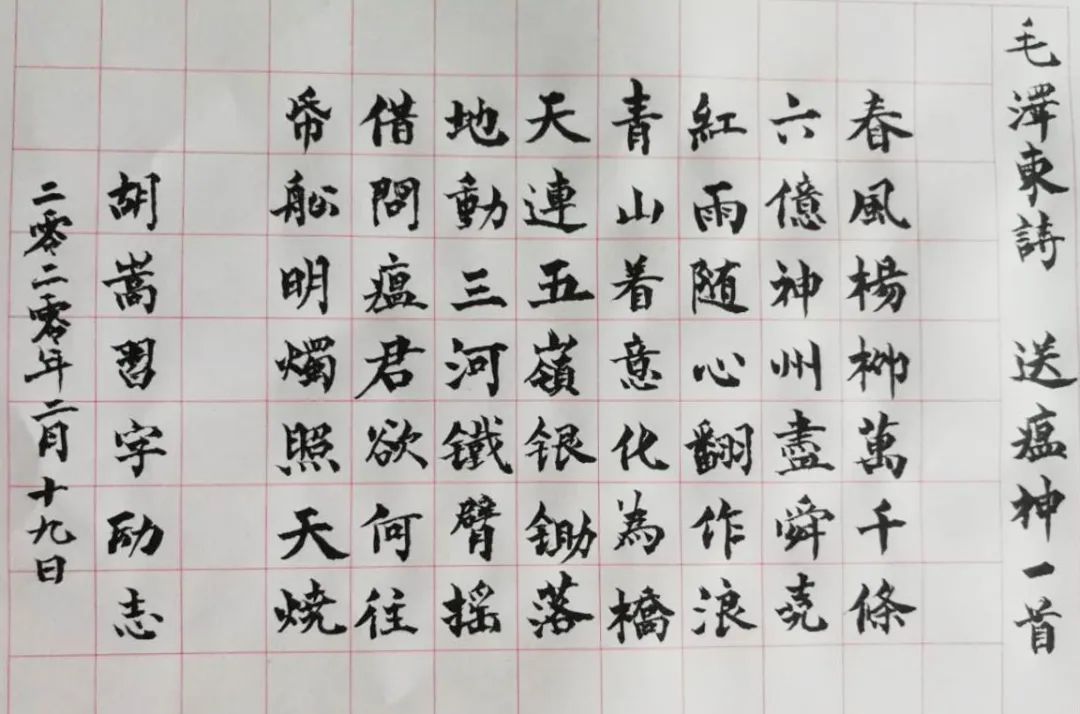 毛澤東詩 送瘟神一首
春風楊柳萬千條
六億神州盡舜堯
紅雨随心翻作浪
青山着意化為橋
天連五嶺银鋤落
地動三河鐵臂摇
借問瘟君欲何往
帋船明燭照天燒
胡嵩習字励志
二零二零年二月十九日